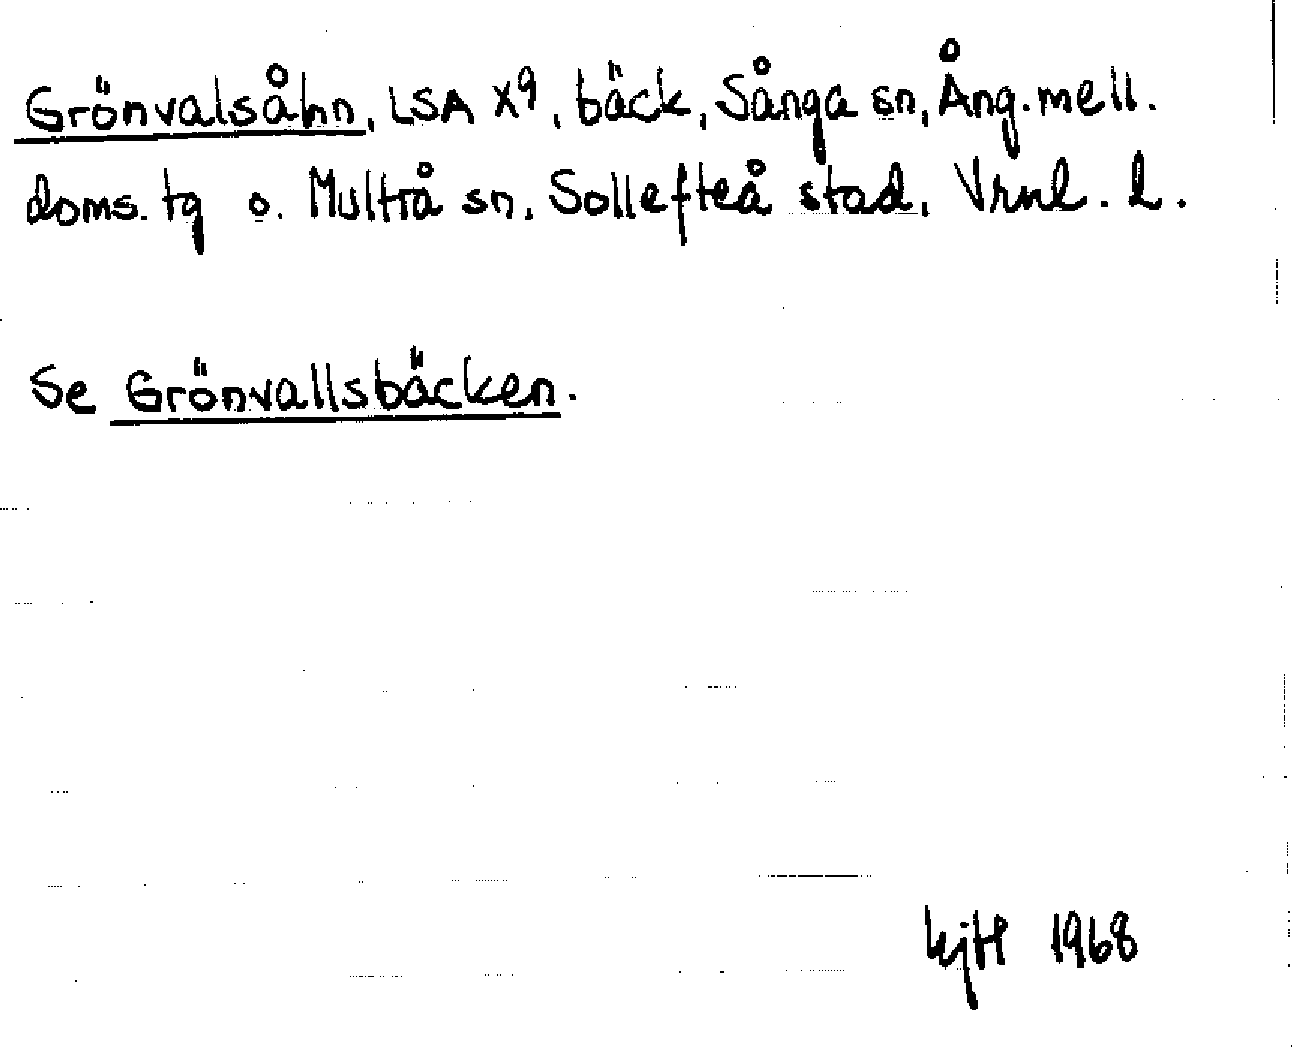 Grönvalsåhn, LSA X9, bäck, Sånga sn, Ång. mell.
doms. tg o. Multrå sn, Sollefteå stad, Vrnl. l.
Se Grönvallsbäcken.
KjH 1968